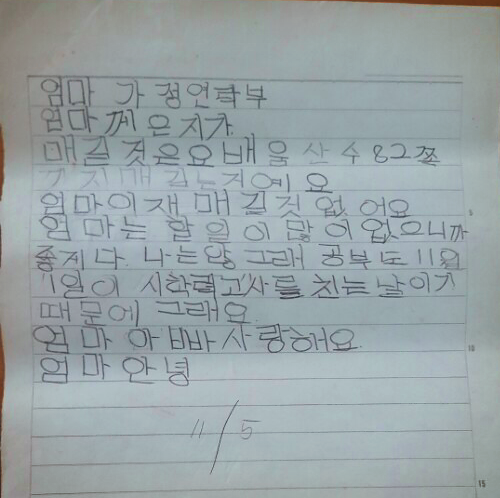 엄마 가정연락부
엄마께 은지가
매길 것은요 배울 산 수 82쪽
까지 매기는거예요
엄마이재 매길것 없어요
엄마는 할일이 많이없으니까
좋게다. 나는왕그래 공부도 11월
11일이 시학력고사를 친는 날이기
때문에 그래요
엄마 아빠사랑해요
엄마 안녕
11/5
5
10
15